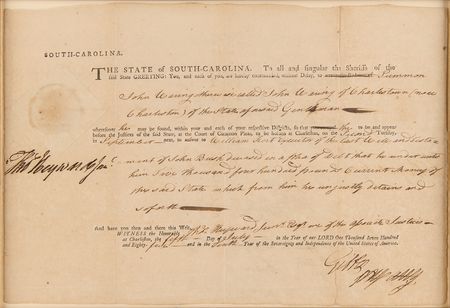 SOUTH-CAROLINA.
THE STATE of SOUTH-CAROLINA. To all and singular the Sheriffs of the
said State GREETING: You, and each of you, are hereby commanded, without Delay, to Summon
John Waring otherwise called John Waring of Charlestown (now
Charleston) of the State aforesaid Gentleman
wheresoever he may be found, within your and each of your respective Districts, so that he be and appear
before the Justices of the said State, at the Court of Common Pleas, to be holden at Charleston, on the Second Tuesday
in September next, to answer to William Executor of the Last Will and testa-
Thos Heyward Junr
ment of John Bush deceased in a plea of Debt that he render unto
him Five thousand four hundred pounds Current Money of
the said State which from him he unjustly detains and
so forth
And have you then and there this Writ.
WITNESS the Honorable Thos Heyward Junr Esqr one of the Associate Justices
at Charleston, the Day of in the Year of our LORD One Thousand Seven Hundred
and Eighty- and in the Year of the Sovereignty and Independence of the United States of America.